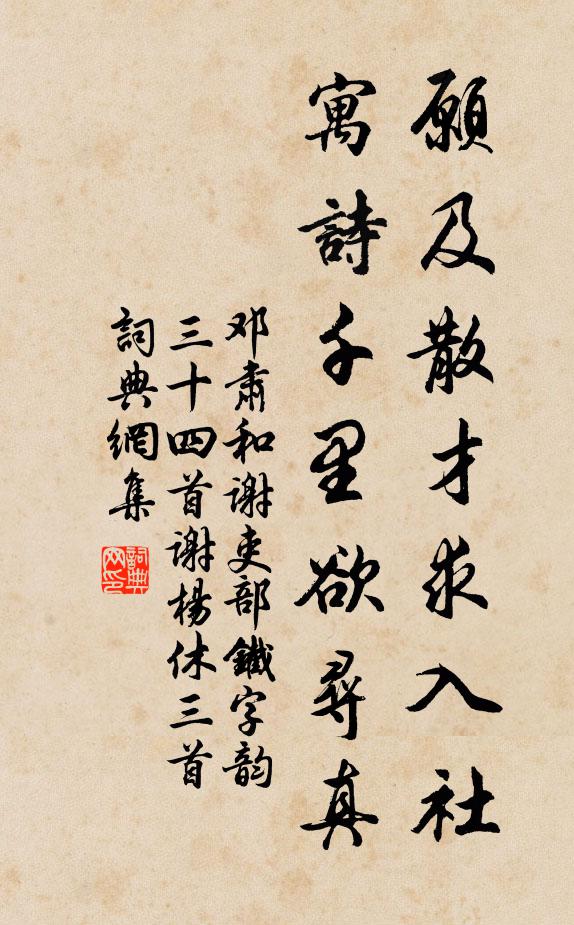 願及散才求入社
寓詩千里欲尋真
邓肅和谢吏部鐵字韵
三十四首谢楊休三首
詞典網集
詞典网印